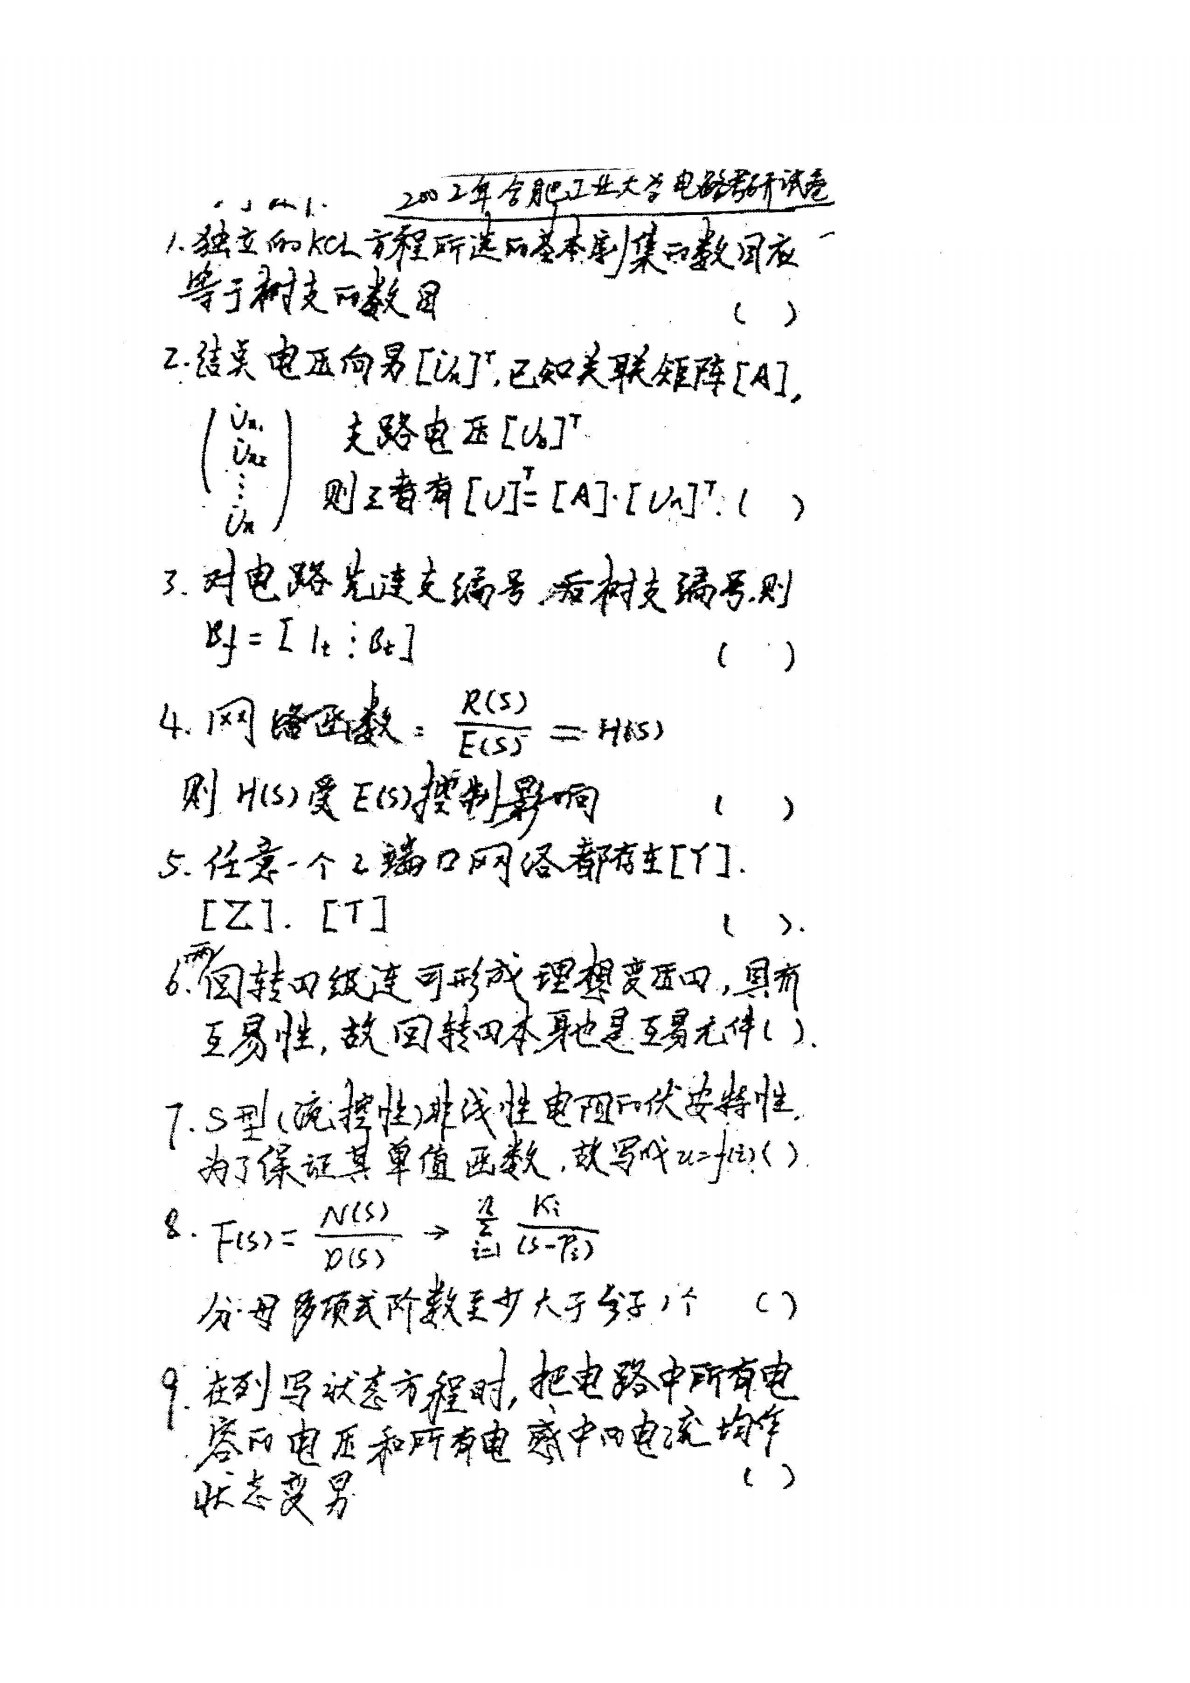 2002年合肥工业大学电路考研试卷
1.独立的KCL方程所选的基本割集的数目应
等于树支的数目 ( )
2.结点电压向量[U̇n]ᵀ,已知关联矩阵[A],
(U̇n1 U̇n2 ⋮ U̇n) 支路电压[Ub]ᵀ
则三者有[U]ᵀ=[A]·[Un]ᵀ.( )
3.对电路先连支编号,后树支编号,则
Bf=[1t⋮Bt] ( )
4.网络函数: R(S)/E(S) = H(S)
则H(S)受E(S)控制影响 ( )
5.任意一个2端口网络都存在[Y].
[Z].[T] ( ).
6.两回转口级连可形成理想变压口,具有
互易性,故回转口本身也是互易元件( ).
7.S型(流控性)非线性电阻的伏安特性,
为了保证其单值函数,故写成u=f(i)( ).
8.F(S)= N(S)/D(S) → ∑ᵢ₌₁ⁿ Ki/(S-Pi)
分母多项式阶数至少大于分子1个 ( )
9.在列写状态方程时,把电路中所有电
容的电压和所有电感中的电流均作
状态变量 ( )